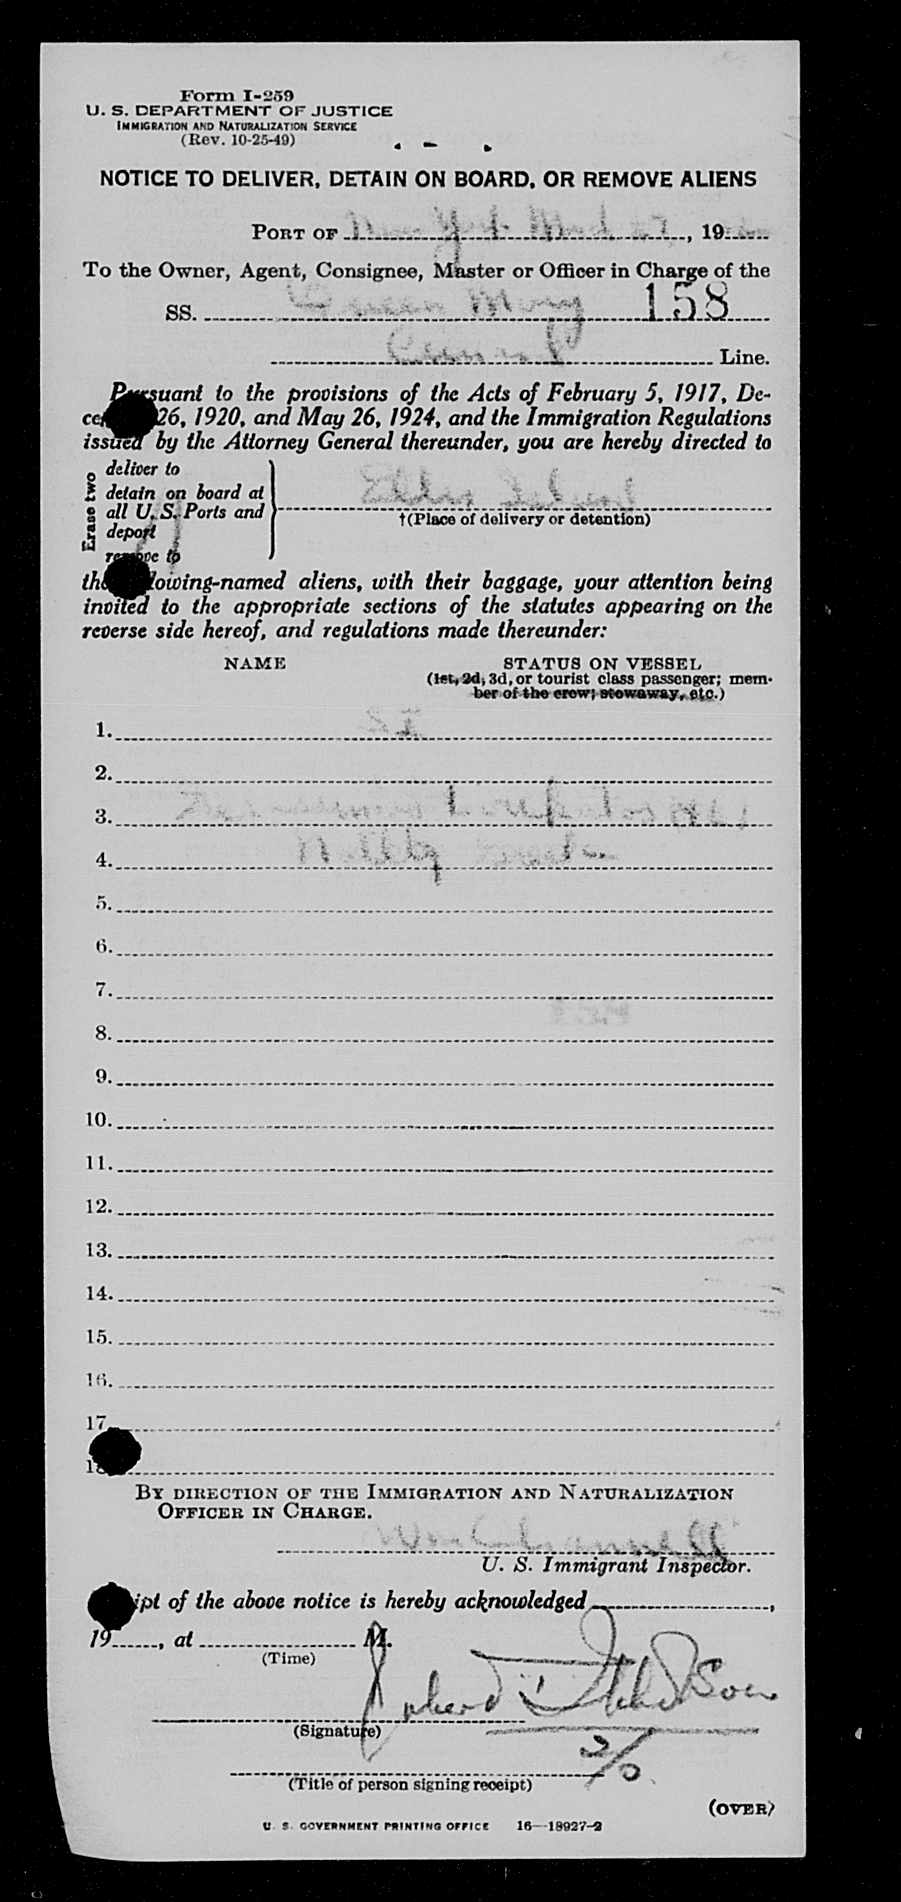 Form I-259
U. S. DEPARTMENT OF JUSTICE
IMMIGRATION AND NATURALIZATION SERVICE
(Rev. 10-25-49)
NOTICE TO DELIVER, DETAIN ON BOARD, OR REMOVE ALIENS
PORT OF New York March 27, 19
To the Owner, Agent, Consignee, Master or Officer in Charge of the
SS. Queen Mary 158
Cunard Line.
Pursuant to the provisions of the Acts of February 5, 1917, De-
26, 1920, and May 26, 1924, and the Immigration Regulations
issued by the Attorney General thereunder, you are hereby directed to
Erase two
deliver to
detain on board at
all U. S. Ports and
deport
remove to
Ellis Island
†(Place of delivery or detention)
the following-named aliens, with their baggage, your attention being
invited to the appropriate sections of the statutes appearing on the
reverse side hereof, and regulations made thereunder:
NAME STATUS ON VESSEL
(1st, 2d, 3d, or tourist class passenger; mem-
ber of the crew; stowaway, etc.)
1.
2.
3.
4.
5.
6.
7.
8.
9.
10.
11.
12.
13.
14.
15.
16.
17.
18.
BY DIRECTION OF THE IMMIGRATION AND NATURALIZATION
OFFICER IN CHARGE.
U. S. Immigrant Inspector.
Receipt of the above notice is hereby acknowledged ,
19 , at M.
(Time)
(Signature)
2/O
(Title of person signing receipt)
(OVER)
U. S. GOVERNMENT PRINTING OFFICE 16—18927-2